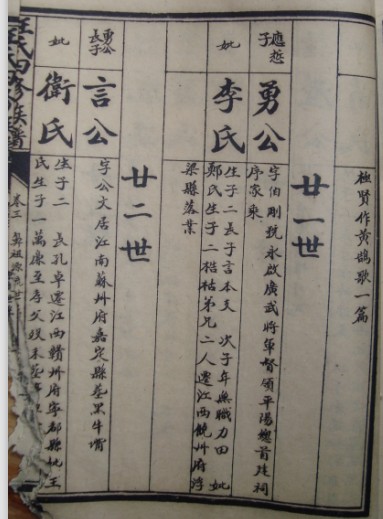 極賢作黃鶴歌一篇
廿一世
應哲子
勇公
字伯剛號永啟廣武將軍督領平陽總首陞祠
序家乘
妣
李氏
生子二長子言本支 次子年無職力田 妣
鄭氏生子二楛枯弟兄二人遷江西饒州府浮
梁縣落業
廿二世
勇公長子
言公
字公文居江南蘇州府嘉定縣葬黑牛壩
妣
衛氏
生子二 長孔卓遷江西贛州府寧都縣
氏生子一萬康至
氏四修族譜
卷三